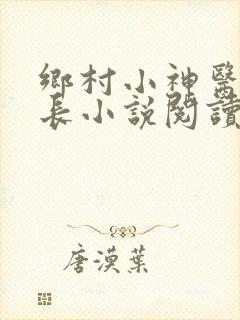 鄉村小神醫
長小說閱讀
唐漠葉